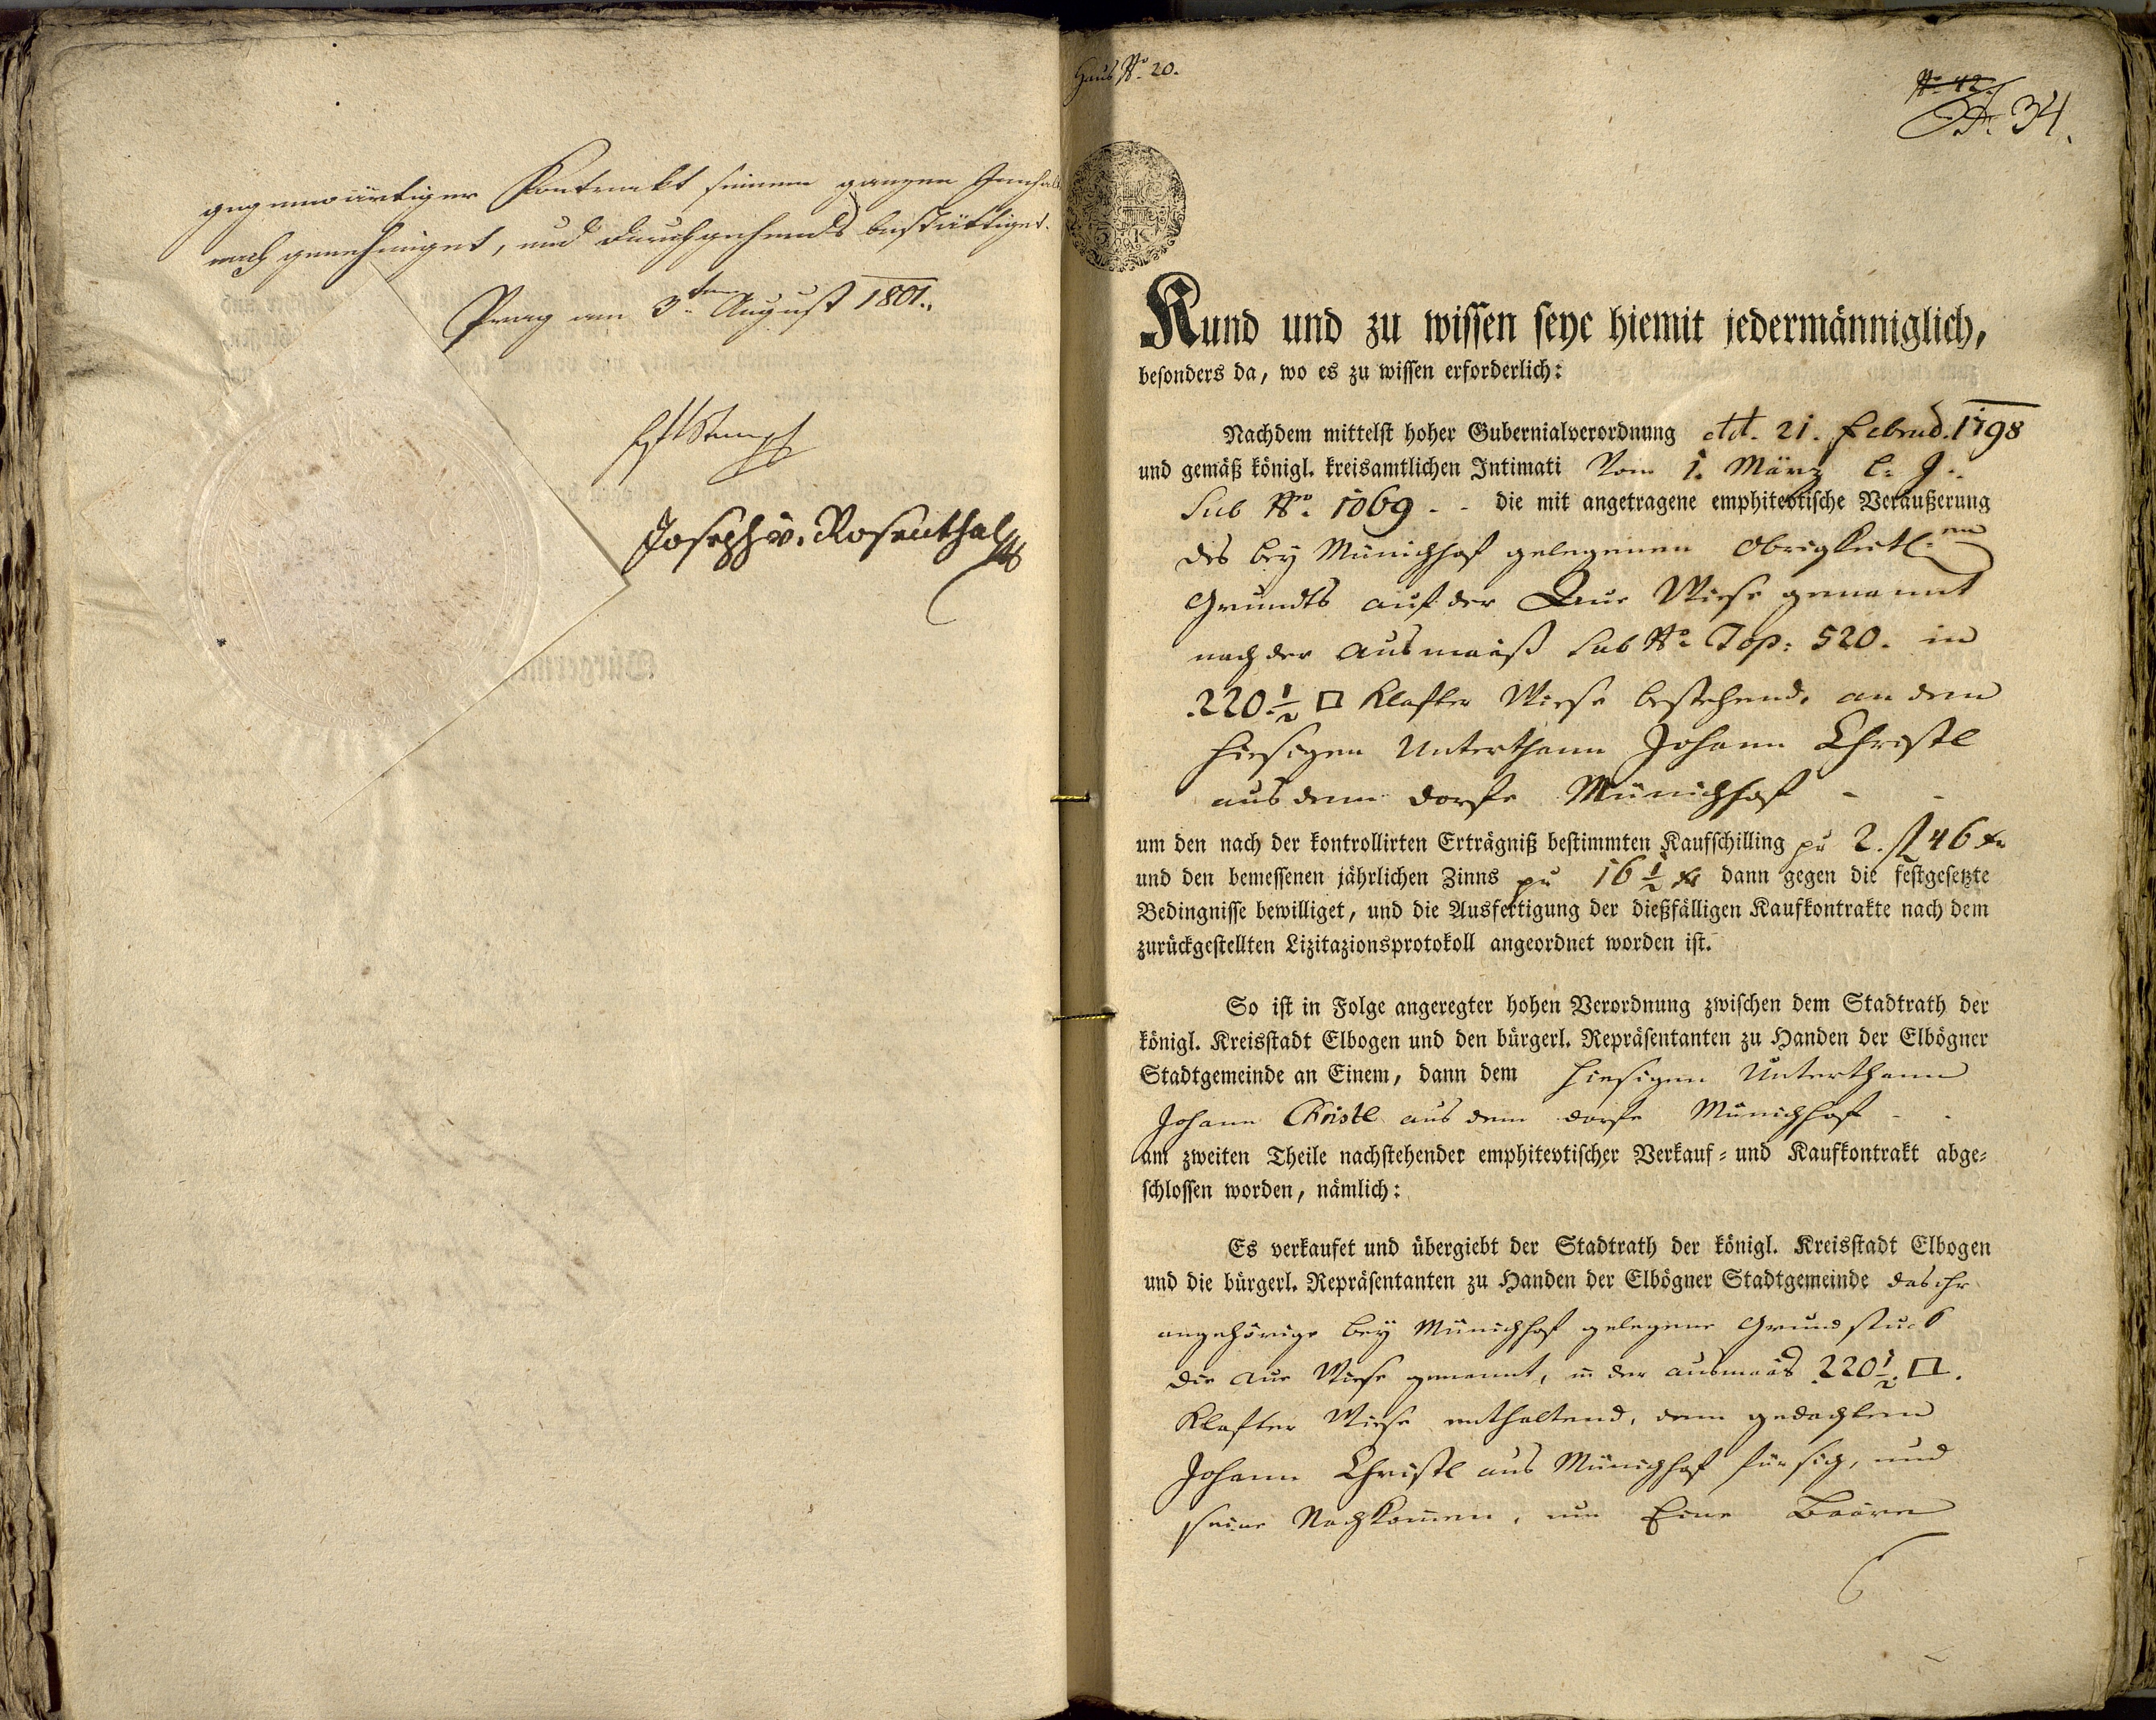 gegenwärtiger Kontrakt seinem ganzen Innhalt
nach genehmiget, und durchgehends bestättiget.
Prag am 3ten August 1801.
Joseph v. Rosenthal
Haus No. 20.
No. 42.
No. 34.
3 K
Kund und zu wissen seye hiemit jedermänniglich,
besonders da, wo es zu wissen erforderlich:
Nachdem mittelst hoher Gubernialverordnung dd. 21. Februd. 1798
und gemäß königl. kreisamtlichen Intimati Vom 1. März l: J:
Sub No. 1069 - - die mit angetragene emphitevtische Veräußerung
des bey Münichhof gelegenen Obrigkeitl:en
Grundts auf der Aue Wiese genannt
nach der Ausmaaß Sub No. Top: 520. in
220 1/2 □ Klafter Wiese bestehend, an den
hiesigen Unterthann Johann Christl
aus dem Dorfe Münichhof - -
um den nach der kontrollirten Erträgniß bestimmten Kaufschilling pr 2. fl 46 xr
und den bemessenen jährlichen Zinns pr 16 1/2 xr dann gegen die festgesetzte
Bedingnisse bewilliget, und die Ausfertigung der dießfälligen Kaufkontrakte nach dem
zurückgestellten Lizitazionsprotokoll angeordnet worden ist.
So ist in Folge angeregter hohen Verordnung zwischen dem Stadtrath der
königl. Kreisstadt Elbogen und den bürgerl. Repräsentanten zu Handen der Elbögner
Stadtgemeinde an Einem, dann dem hiesigen Unterthann
Johann Christl aus dem Dorfe Münichhof - -
am zweiten Theile nachstehender emphitevtischer Verkauf- und Kaufkontrakt abge-
schlossen worden, nämlich:
Es verkaufet und übergiebt der Stadtrath der königl. Kreisstadt Elbogen
und die bürgerl. Repräsentanten zu Handen der Elbögner Stadtgemeinde das ihr
angehörige bey Münichhof gelegene Grundstuck
die Aue Wiese genannt, in der Ausmaas 220 1/2 □.
Klafter Wiese enthaltend, dem gedachten
Johann Christl aus Münichhof für sich, und
seine Nachkomen, um Eine Baare